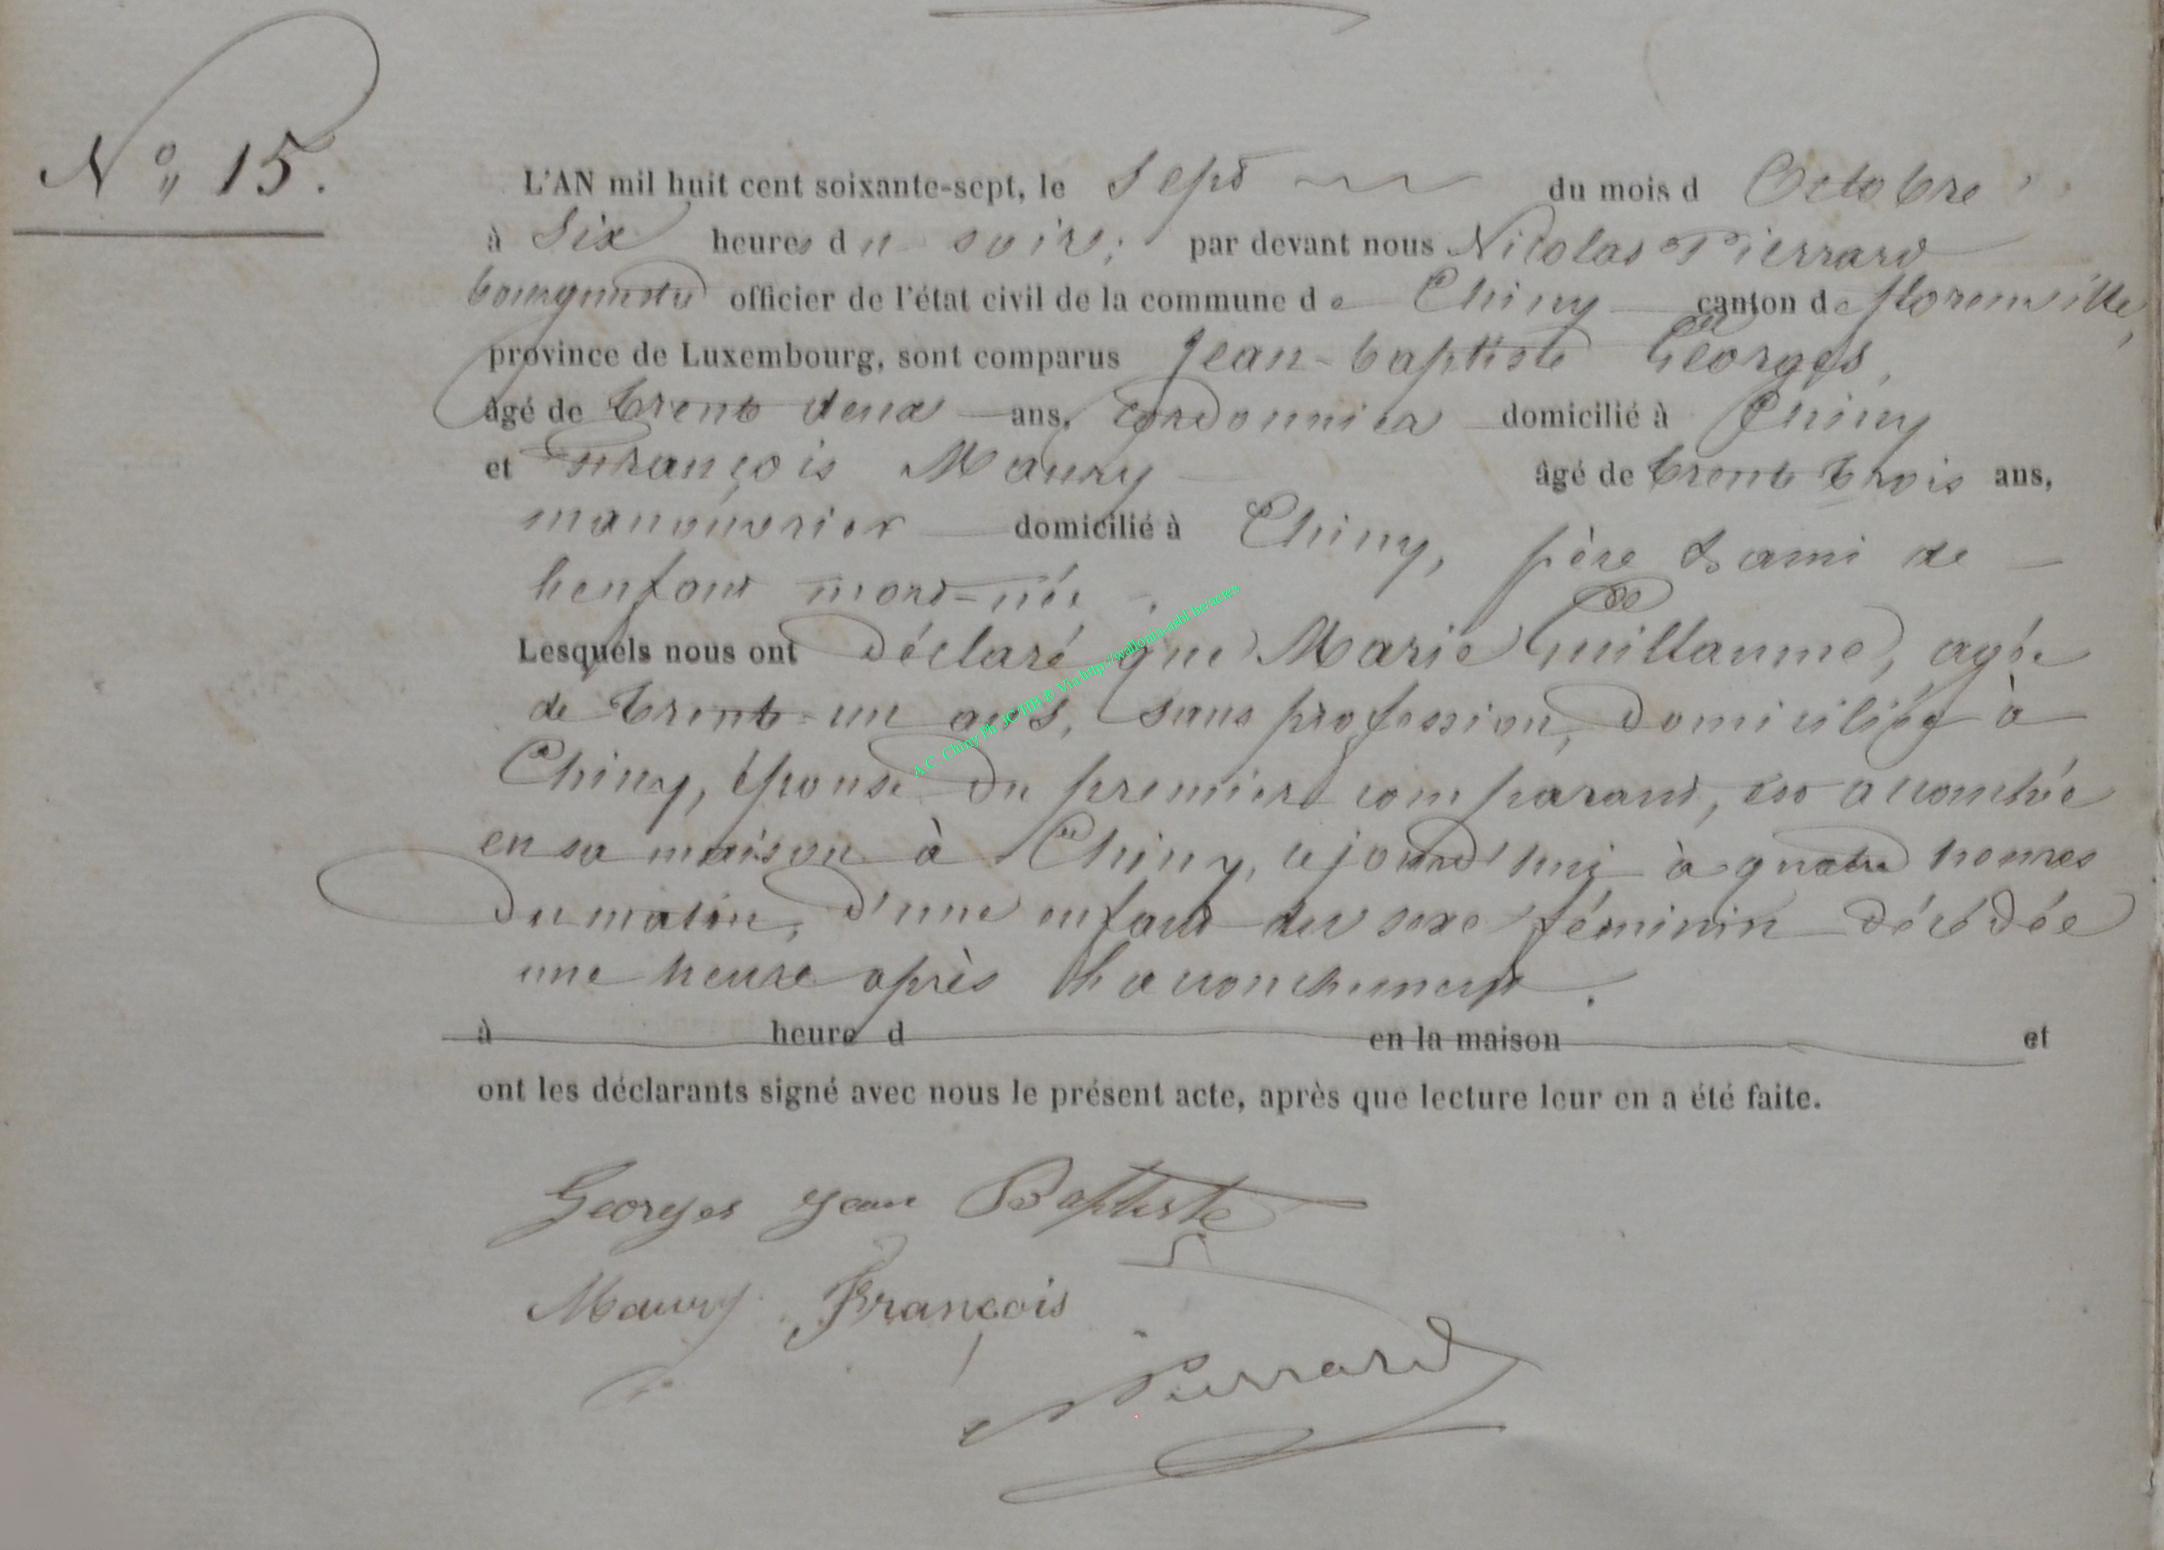 N° 15.
L'AN mil huit cent soixante-sept, le Sept du mois d'Octobre
à Six heures du soir, par devant nous Nicolas Pierrard
bourgmestre officier de l'état civil de la commune de Chiny canton de florenville,
province de Luxembourg, sont comparus Jean-baptiste Georges,
âgé de trente deux ans, cordonnier domicilié à Chiny
et François Maury âgé de trente trois ans,
manouvrier domicilié à Chiny, père & ami de
l'enfant mort-née.
Lesquels nous ont déclaré que Marie Guillaume, agée
de trente-un ans, sans profession, domiciliée à
Chiny, épouse du premier comparant, est accouchée
en sa maison à Chiny, cejourd'hui à quatre heures
du matin, d'une enfant du sexe féminin décédée
une heure après l'accouchement.
à heure d en la maison et
ont les déclarants signé avec nous le présent acte, après que lecture leur en a été faite.
Georges Jean Baptiste
Maury François
Pierrard
A.C. Chiny Ph JCTHI © Via http://wallonia-asbl.be/actes